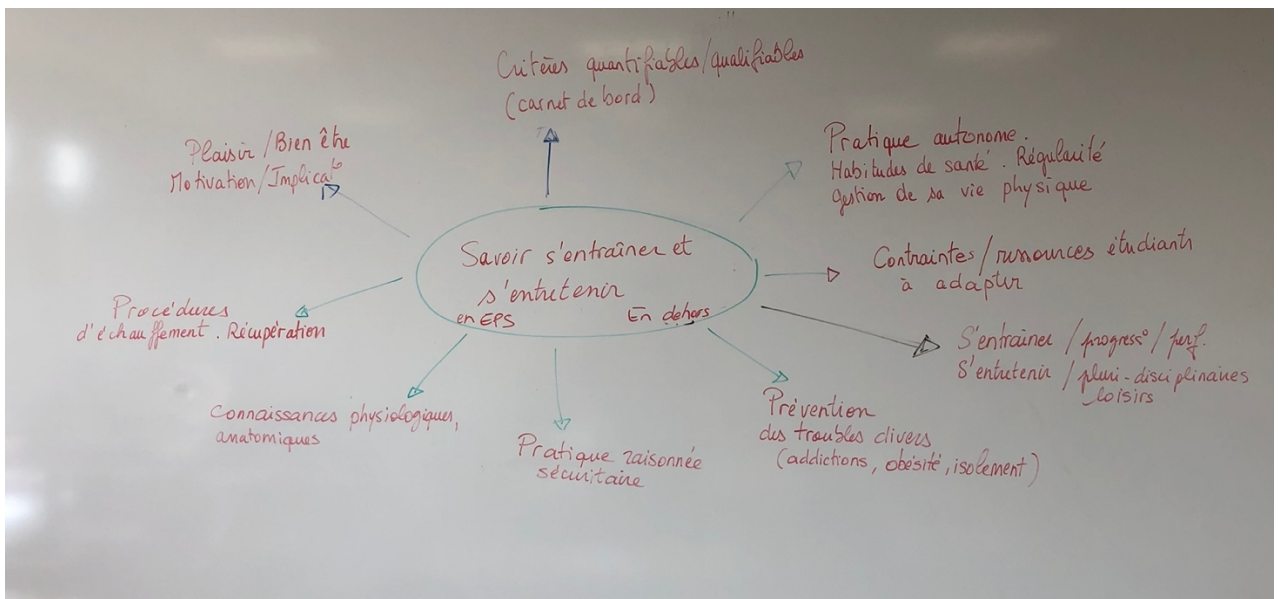 Critères quantifiables/qualifiables
(carnet de bord)
Plaisir/Bien être
Motivation/Implicat°
Pratique autonome.
Habitudes de santé. Régularité
gestion de sa vie physique
Savoir s'entraîner et
s'entretenir
en EPS En dehors
Contraintes/ressources étudiants
à adapter
Procédures
d'échauffement. Récupération
S'entraîner / progress° / perf.
S'entretenir / pluri-disciplinaires
loisirs
Connaissances physiologiques,
anatomiques
Pratique raisonnée
sécuritaire
Prévention
des troubles divers
(addictions, obésité, isolement)